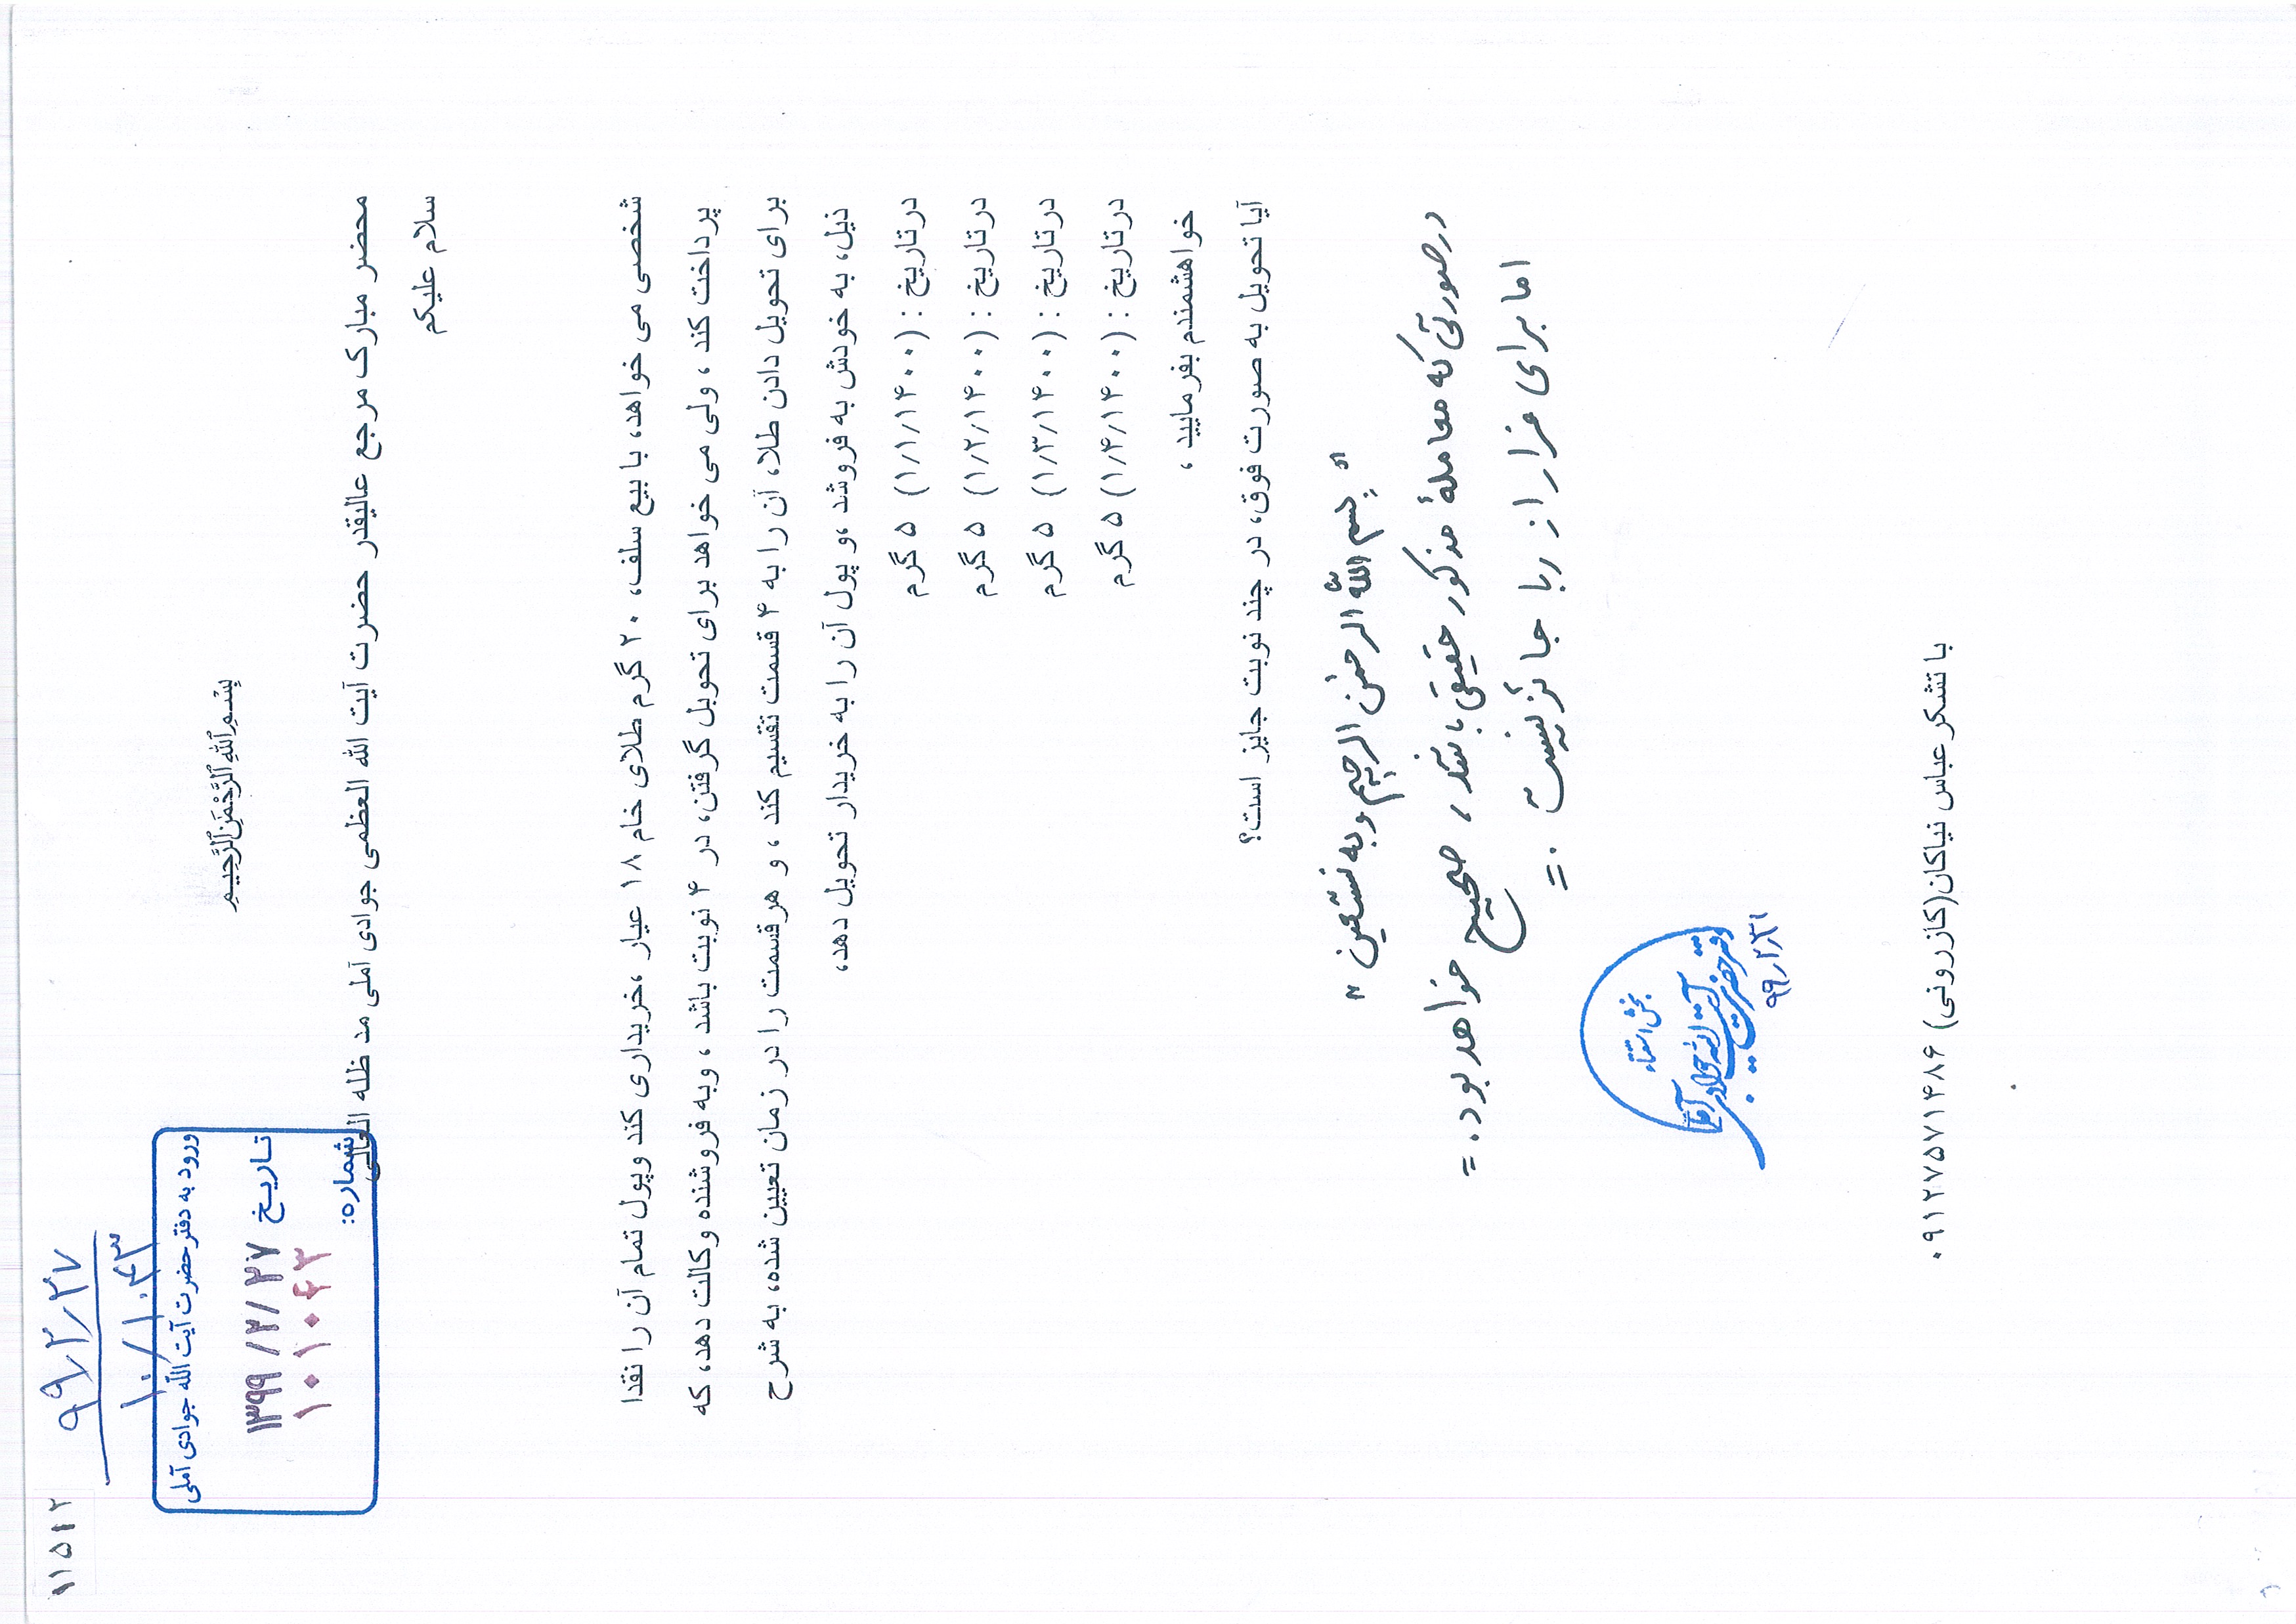 ۱۱۵۱۲
۹۹/۲/۲۷
۱۰/۱۰۴۳
ورود به دفتر حضرت آیت الله جوادی آملی
تاریخ ۱۳۹۹/۲/۲۷
شماره: ۱۰۱۰۴۳
بِسْمِ ٱللَّهِ ٱلرَّحْمَٰنِ ٱلرَّحِيمِ
محضر مبارک مرجع عالیقدر حضرت آیت الله العظمی جوادی آملی مد ظله العالی
سلام علیکم
شخصی می خواهد، با بیع سلف، ۲۰ گرم طلای خام ۱۸ عیار ،خریداری کند وپول تمام آن را نقدا
پرداخت کند ، ولی می خواهد برای تحویل گرفتن، در ۴ نوبت باشد ، وبه فروشنده وکالت دهد، که
برای تحویل دادن طلا، آن را به ۴ قسمت تقسیم کند ، و هرقسمت را در زمان تعیین شده، به شرح
ذیل، به خودش به فروشد ،و پول آن را به خریدار تحویل دهد،
در تاریخ : (۱/۱/۱۴۰۰) ۵ گرم
در تاریخ : (۱/۲/۱۴۰۰) ۵ گرم
در تاریخ : (۱/۳/۱۴۰۰) ۵ گرم
در تاریخ : (۱/۴/۱۴۰۰) ۵ گرم
خواهشمندم بفرمایید ،
آیا تحویل به صورت فوق، در چند نوبت جایز است؟
" بسم الله الرحمن الرحیم و به نستعین "
در صورتی که معاملهٔ مذکور حقیقی باشد، صحیح خواهد بود. =
اما برای فرار از ربا جائز نیست . =
بخش استفتاء
دفتر حضرت
آیت الله جوادی آملی
۹۹/۲/۳۱
با تشکر عباس نیاکان(کازرونی) ۰۹۱۲۷۵۷۱۴۸۶